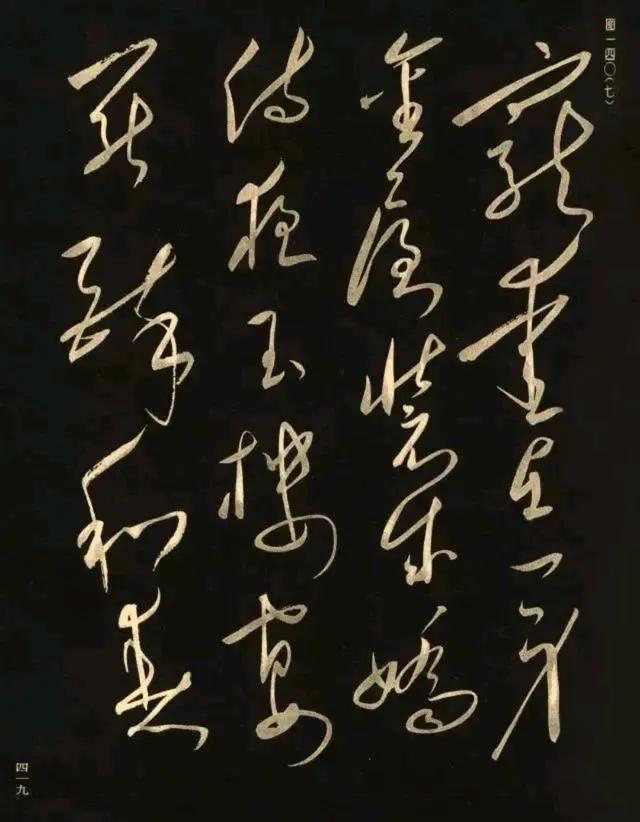 圖一四〇(七)
寵愛在一身
金屋裝成嬌
侍夜玉樓宴
罷醉和春
四一九